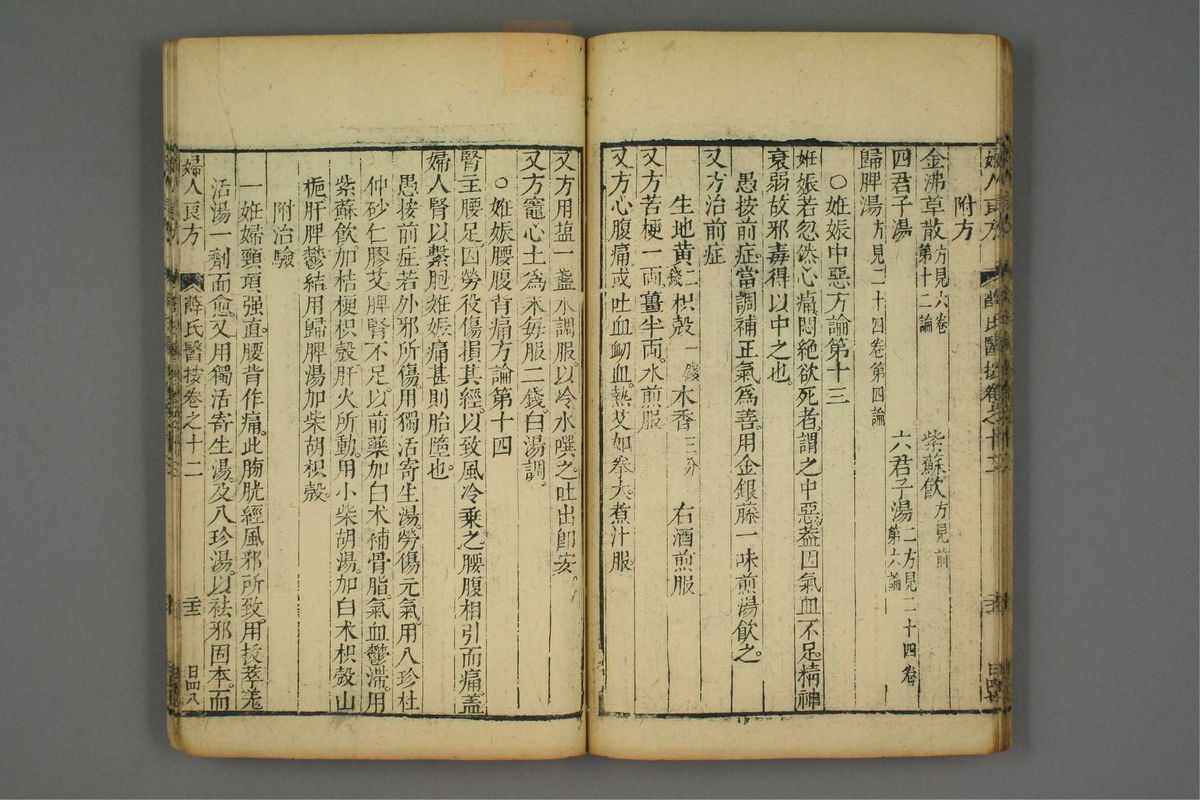 婦人良方　薛氏醫按卷之十二
附方
金沸草散方見六卷第十二論　紫蘇飲方見前
四君子湯　六君子湯二方見二十四卷第六論
歸脾湯方見二十四卷第四論
○姙娠中惡方論第十三
姙娠若忽然心痛悶絶欲死者謂之中惡蓋因氣血不足精神
衰弱故邪毒得以中之也
愚按前症當調補正氣爲善用金銀藤一味煎湯飲之
又方治前症
生地黄二錢　枳殻一錢　木香三分　右酒煎服
又方苦梗一兩薑半兩水煎服
又方心腹痛或吐血衂血熱艾如拳大煮汁服
又方用盐一盞水調服以冷水噀之吐出卽安
又方竈心土爲末每服二錢白湯調
○姙娠腰腹背痛方論第十四
腎主腰足因勞役傷損其經以致風冷乘之腰腹相引而痛蓋
婦人腎以繫胞姙娠痛甚則胎墮也
愚按前症若外邪所傷用獨活寄生湯勞傷元氣用八珍杜
仲砂仁膠艾脾腎不足以前藥加白术補骨脂氣血鬱滯用
紫蘇飲加桔梗枳殻肝火所動用小柴胡湯加白术枳殻山
梔肝脾鬱結用歸脾湯加柴胡枳殻
附治驗
一姙婦頸項强直腰背作痛此膀胱經風邪所致用拔萃羗
活湯一劑而愈又用獨活寄生湯及八珍湯以祛邪固本而
婦人良方　薛氏醫按卷之十二　三　日四八